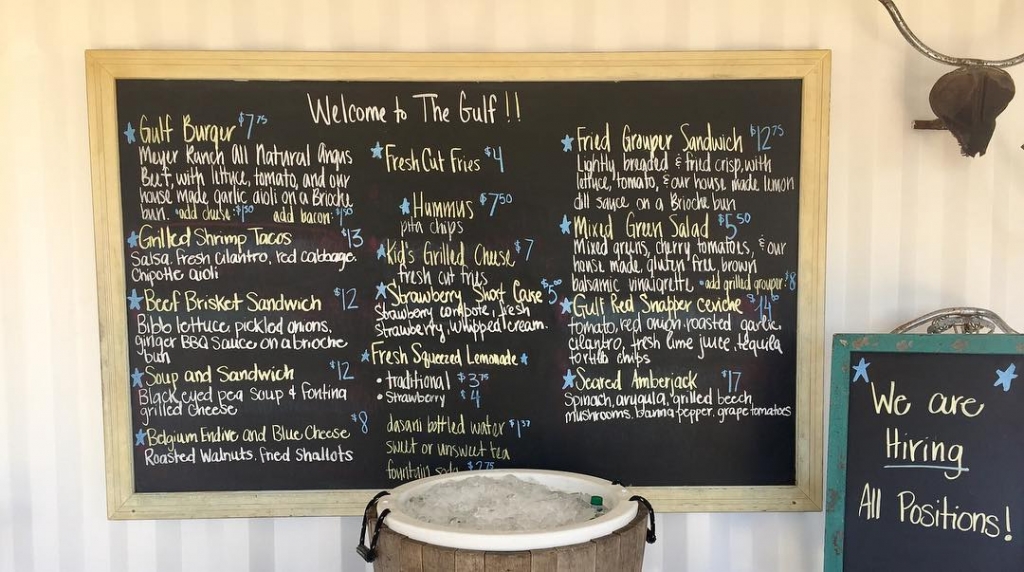 Welcome to The Gulf!!
Gulf Burger $7 75
Meyer Ranch All Natural Angus
Beef, with lettuce, tomato, and our
house made garlic aioli on a Brioche
bun. •add cheese: $1 50 add bacon: $1 50
Grilled Shrimp Tacos $13
Salsa, fresh cilantro, red cabbage.
Chipotle aioli
Beef Brisket Sandwich $12
Bibb lettuce, pickled onions,
ginger BBQ Sauce on a brioche
bun
Soup and Sandwich $12
Black eyed pea soup & fontina
grilled cheese
$8
Belgium Endive and Blue Cheese
Roasted Walnuts, fried shallots
Fresh Cut Fries $4
Hummus $7 50
pita chips
Kid's Grilled Cheese $7
fresh cut fries
Strawberry Short Cake $5
strawberry compote, fresh
strawberry, whipped cream.
Fresh Squeezed Lemonade
• traditional $3 75
• Strawberry $4
dasani bottled water
sweet or unsweet tea
fountain soda $2 75
Fried Grouper Sandwich $12 75
Lightly breaded & fried crisp, with
lettuce, tomato, & our house made lemon
dill sauce on a Brioche bun
Mixed Green Salad $5 50
Mixed greens, cherry tomatoes, & our
house made, gluten free, brown
balsamic vinaigrette •add grilled grouper: $8
Gulf Red Snapper ceviche $14
tomato, red onion, roasted garlic,
cilantro, fresh lime juice, tequila
tortilla chips
Seared Amberjack $17
Spinach, arugula, grilled beech
mushrooms, banana pepper, grape tomatoes
We are
Hiring
All Positions!